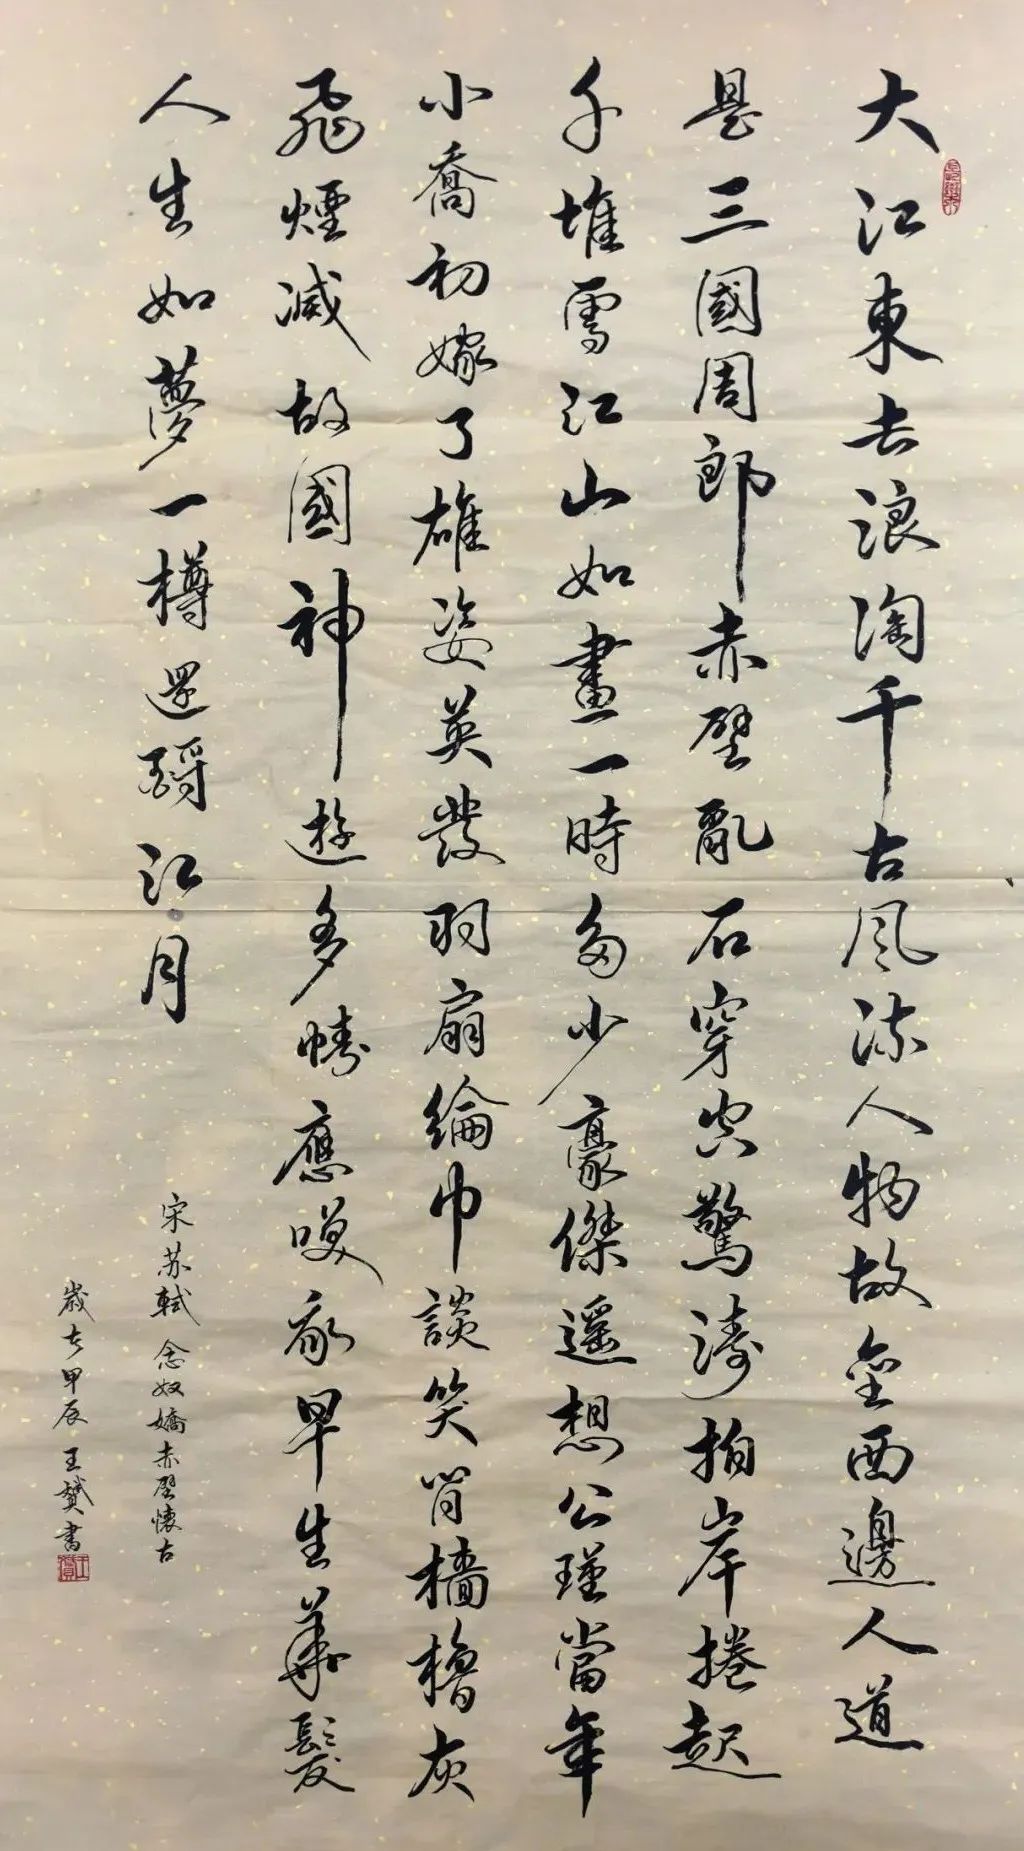 大江東去浪淘千古風流人物故壘西邊人道
是三國周郎赤壁亂石穿空驚濤拍岸捲起
千堆雪江山如畫一時多少豪傑遥想公瑾當年
小喬初嫁了雄姿英發羽扇綸巾談笑間檣櫓灰
飛煙滅故國神遊多情應嘆我早生華髮
人生如夢一樽還酹江月
宋苏軾念奴嬌赤壁懷古
歲在甲辰王贊書